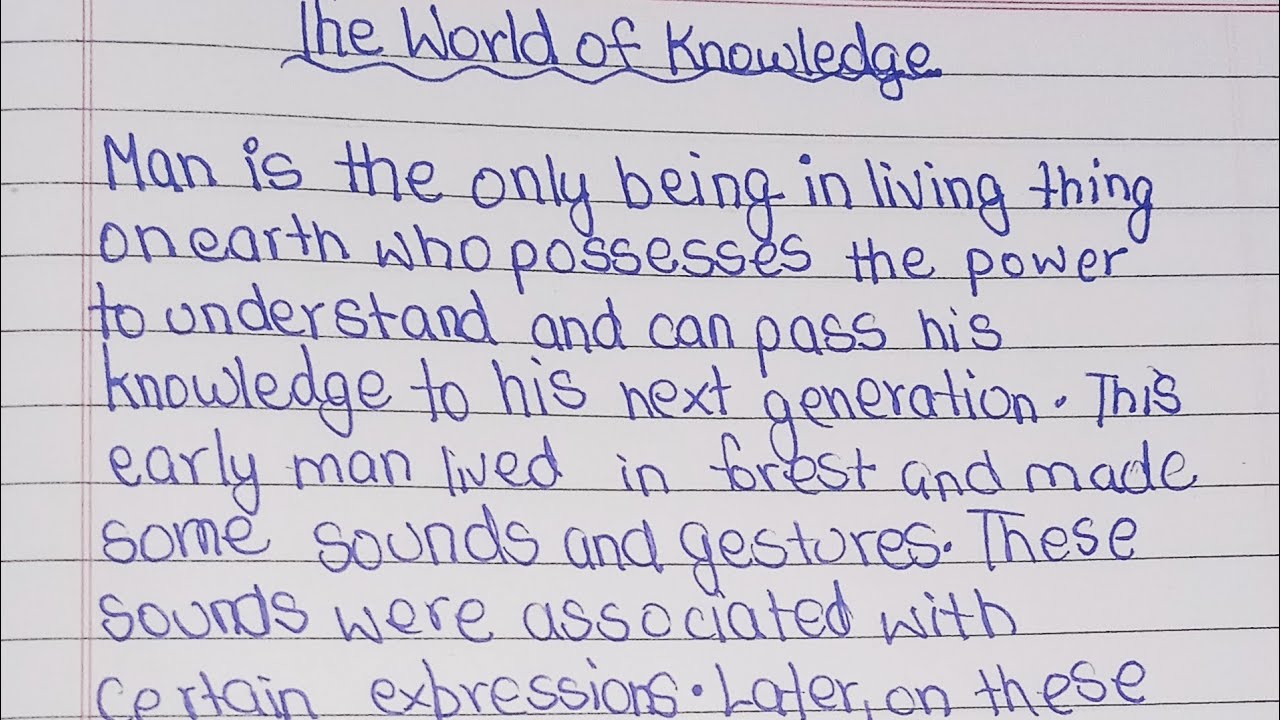 The World of Knowledge
Man is the only being in living thing
on earth who possesses the power
to understand and can pass his
knowledge to his next generation. This
early man lived in forest and made
some sounds and gestures. These
sounds were associated with
certain expressions. Later, on these